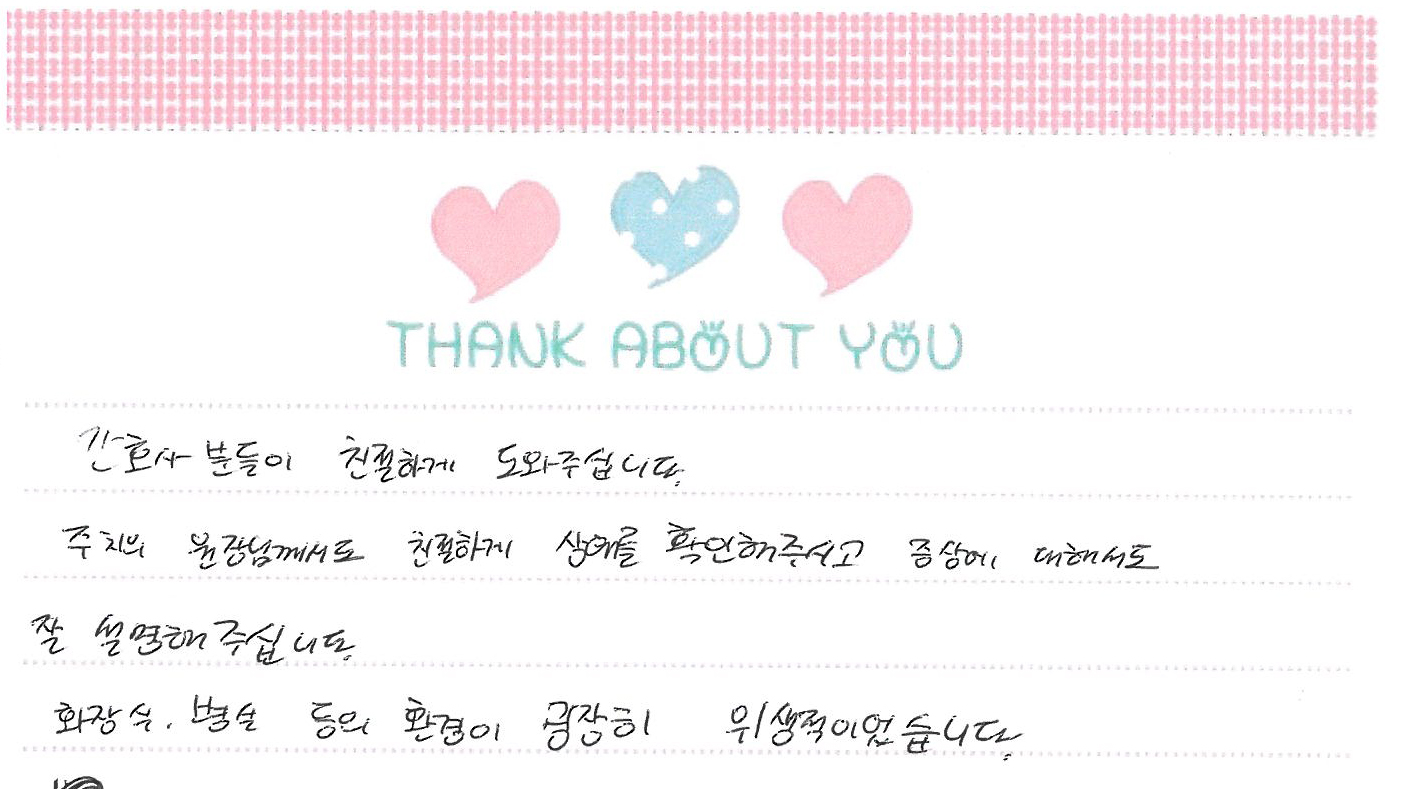 THANK ABOUT YOU
간호사 분들이 친절하게 도와주십니다.
주치의 원장님께서도 친절하게 상태를 확인해주시고 증상에 대해서도
잘 설명해 주십니다.
화장실. 병실 등의 환경이 굉장히 위생적이었습니다.